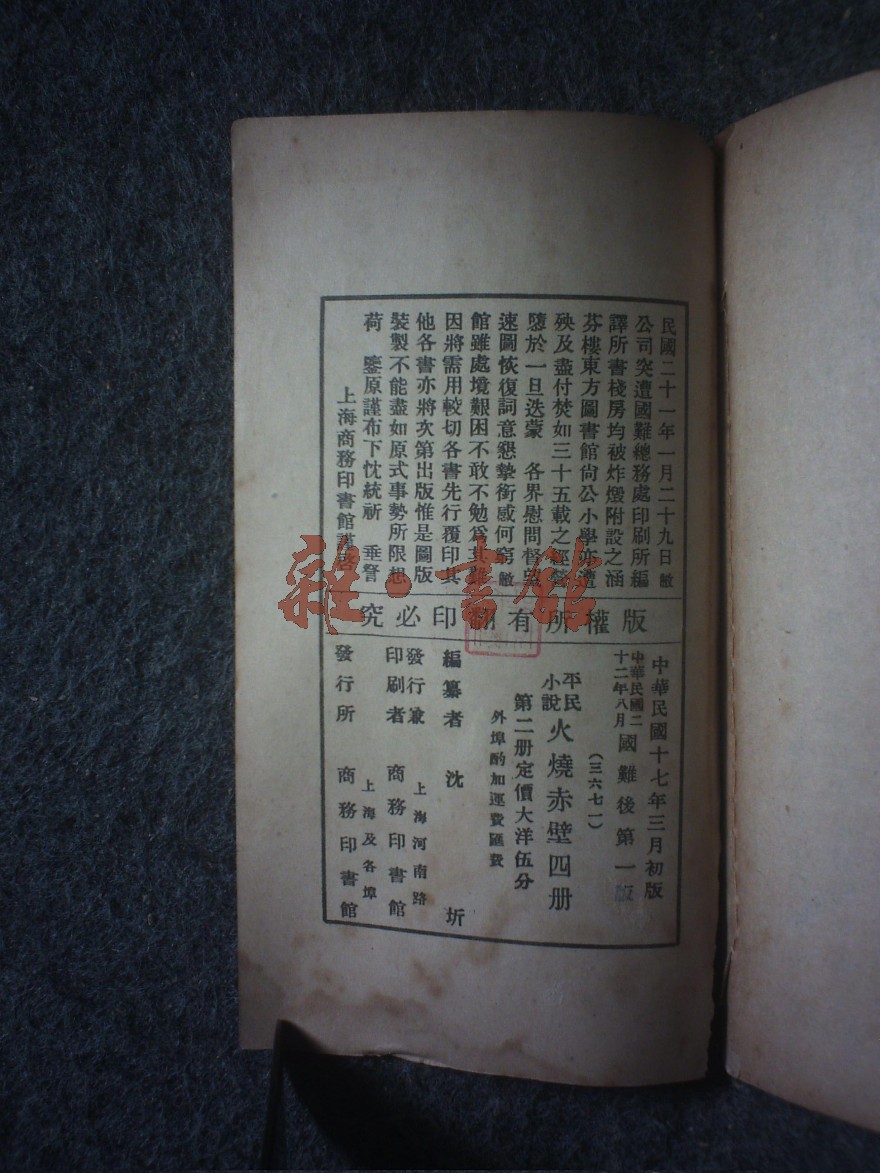 民國二十一年一月二十九日敝
公司突遭國難總務處印刷所編
譯所書棧房均被炸燬附設之涵
芬樓東方圖書館尙公小學亦遭
殃及盡付焚如三十五載之經營
隳於一旦迭蒙 各界慰問督望
速圖恢復詞意懇摯銜感何窮敝
館雖處境艱困不敢不勉爲其難
因將需用較切各書先行覆印其
他各書亦將次第出版惟是圖版
裝製不能盡如原式事勢所限想
荷 鑒原謹布下忱統祈 垂詧
上海商務印書館謹啓
版權所有翻印必究
中華民國十七年三月初版
中華民國二十二年八月國難後第一版
(三六七一)
平民小說 火燒赤壁四册
第二册定價大洋伍分
外埠酌加運費匯費
編纂者 沈圻
發行兼印刷者 上海河南路 商務印書館
發行所 上海及各埠 商務印書館
雜·書館